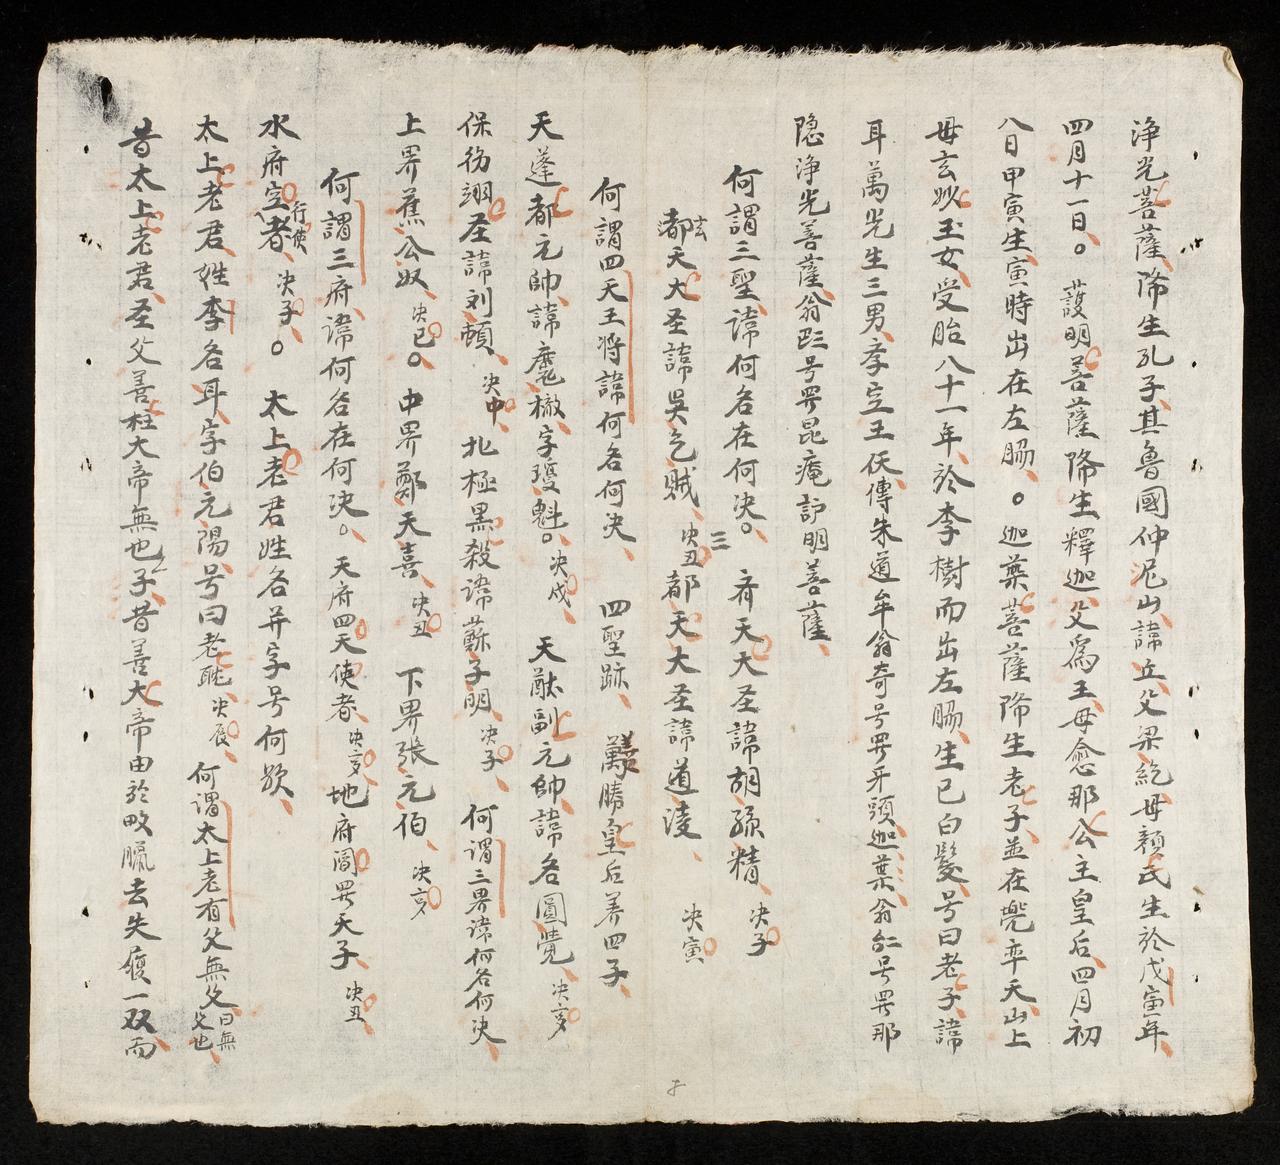 浄光菩薩降生孔子其魯國仲泥山諱丘父梁紇母顔氏生於戊寅年
四月十一日。護明菩薩降生釋迦父爲王母愈那公主皇后四月初
八日甲寅生寅時出在左脇。迦葉菩薩降生老子並在兠率天山上
母玄妙玉女受胎八十一年於李樹而出左脇生已白髮号曰老子諱
耳萬光生三男孝定王仸傳朱道牟翁奇号牙頭迦葉翁号那
隐浄光善薩翁号昆庵訪明善薩
何謂三聖諱何名在何决。齊天大圣諱胡孫精决子
玄都天大圣諱吳乞賊决丑三都天大圣諱道淩决寅
何謂四天王将諱何名何决 四聖跡 萬勝皇后养四子
天蓬都元帥諱麾撤字瓊魁。决戍 天猷副元帥諱名圓覺决亥
保徳翊圣諱刘頓决中 北極黑殺諱蘇子明决子 何謂三界諱何名何决
上界蕉公奴决巳。中界鄭天喜决丑 下界張元伯决亥
何謂三府諱何名在何决。天府四天使者决亥地府閻天子决丑
水府定行使者决子。太上老君姓名并字号何欵
太上老君姓李名耳字伯元陽号曰老聃决辰 何謂太上老有父無父曰無父也
昔太上老君圣父善柱大帝無也子昔善大帝由於畋臘去失履一双而